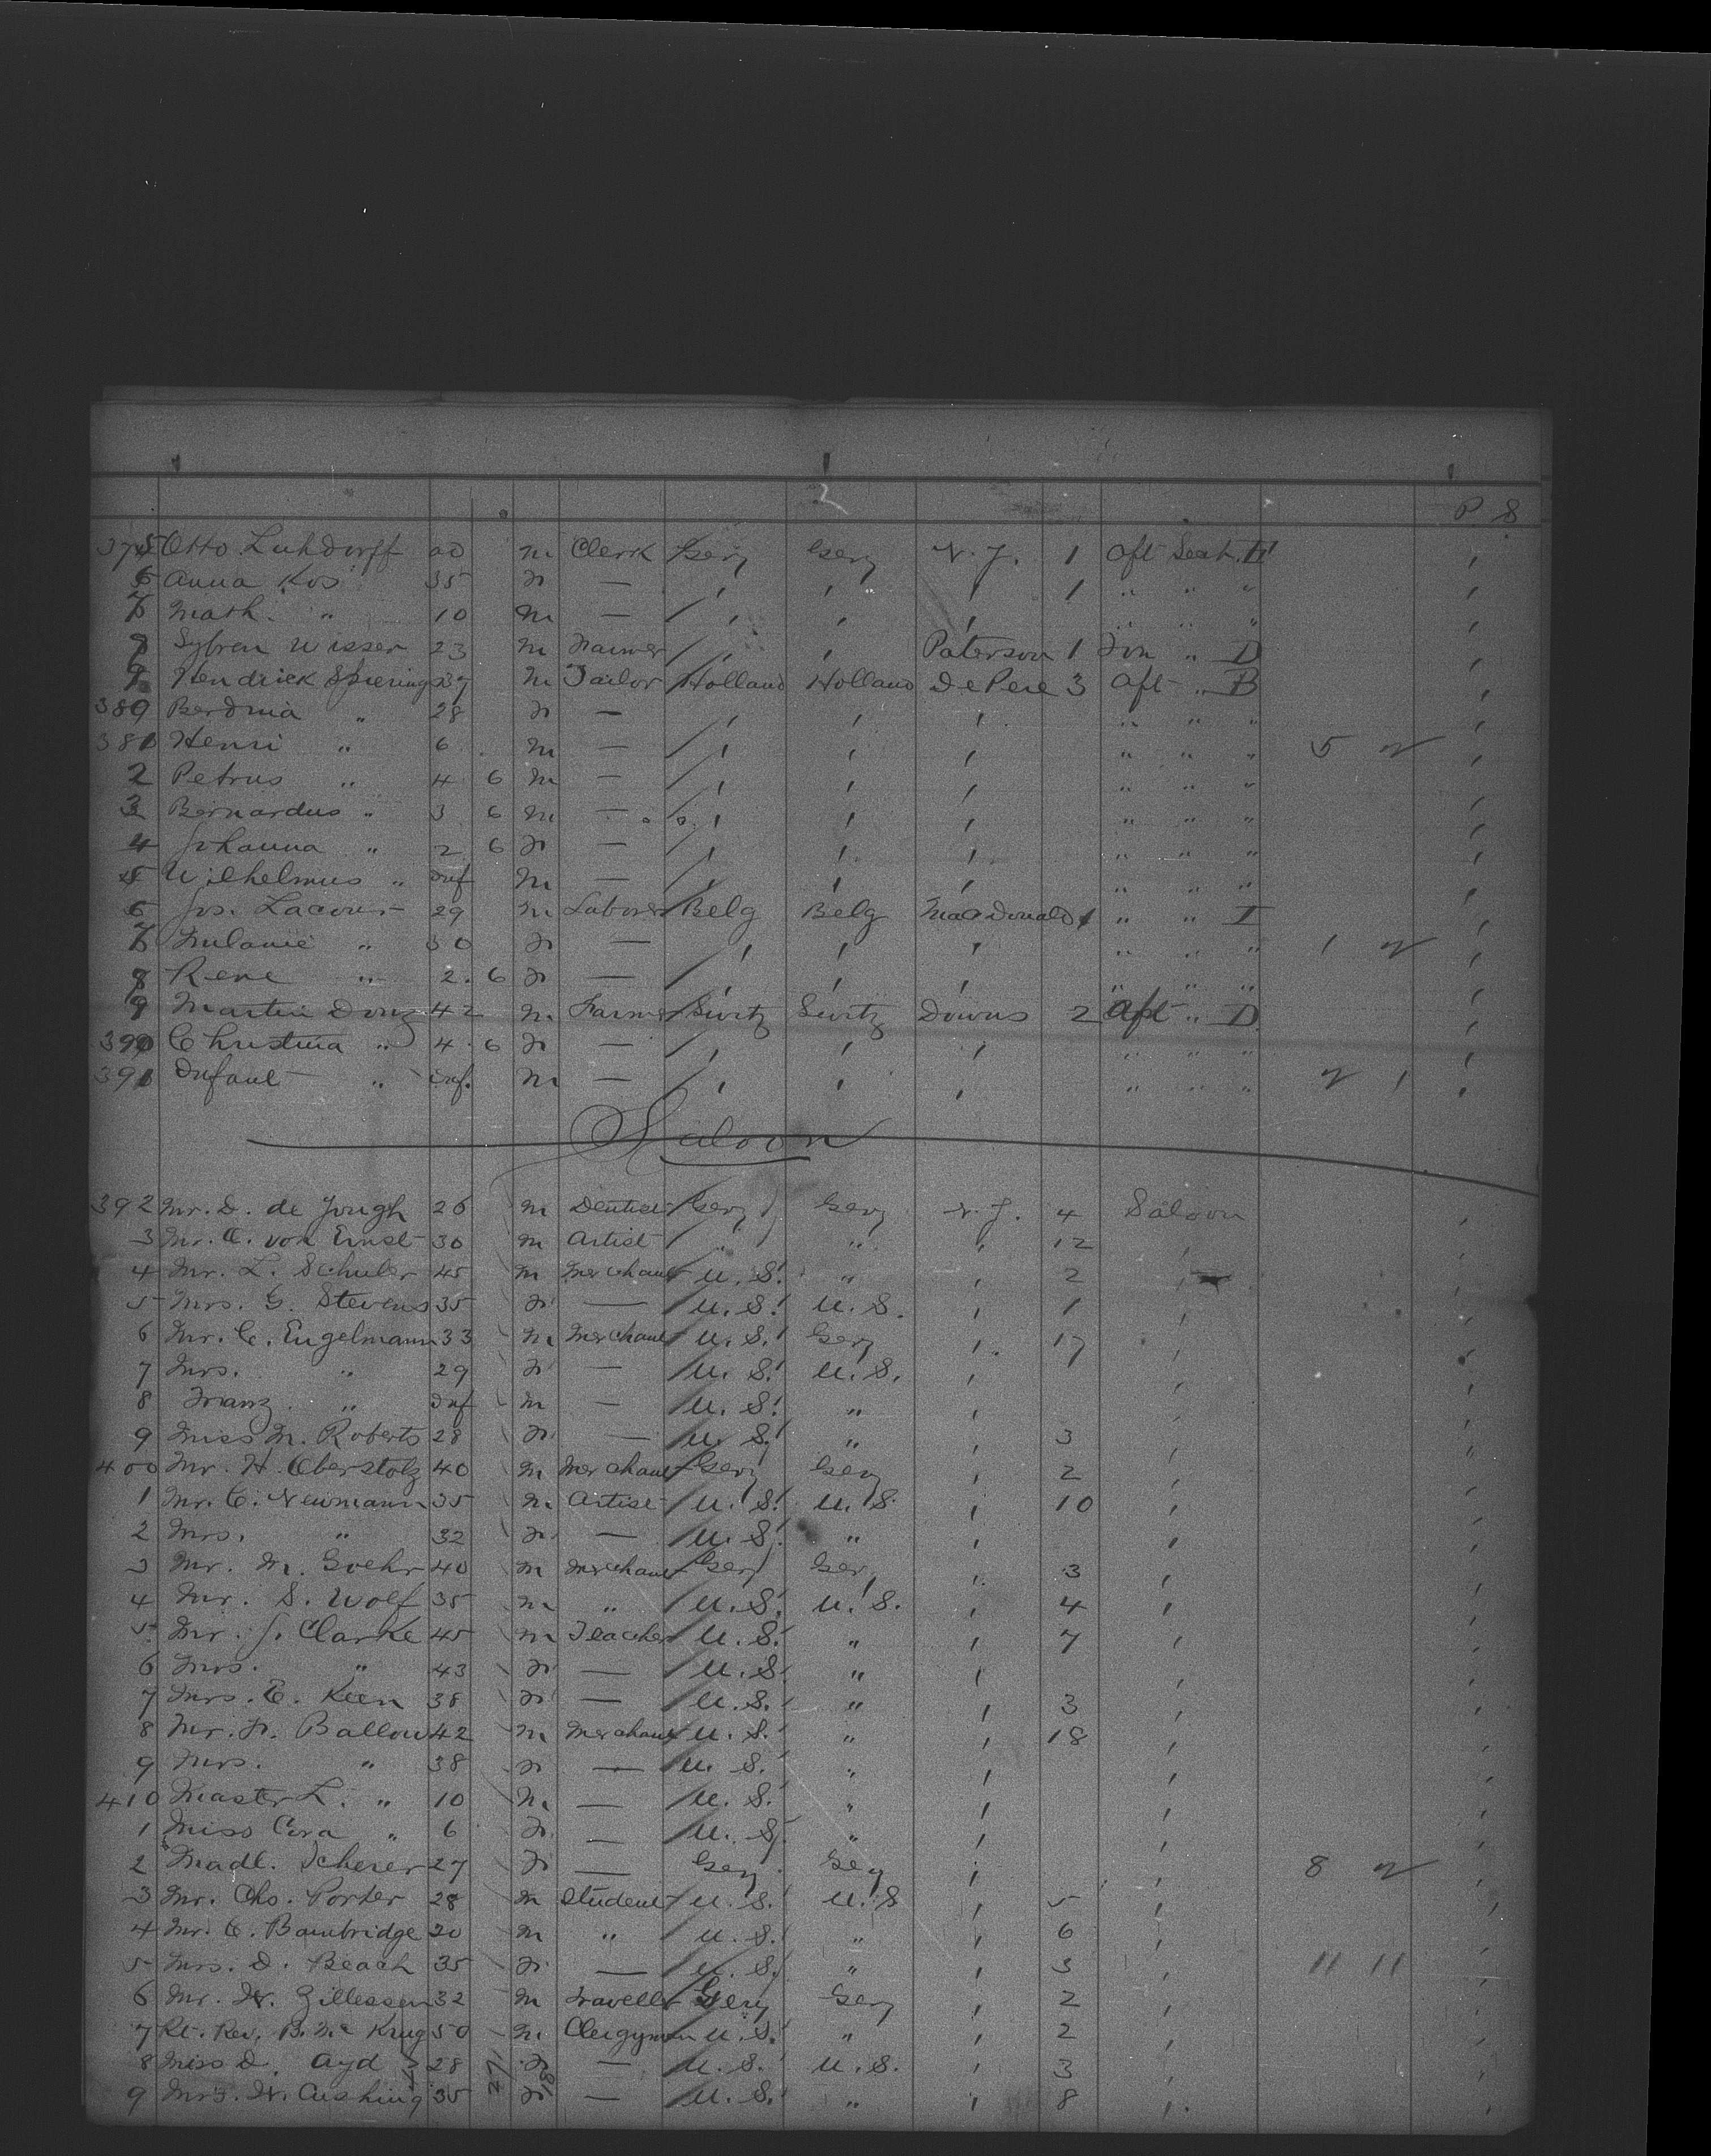 P. S
375 Otto Luhdorff 20 m Clerk Gery Gery N.Y. 1 Aft Seat. II
6 Anna Kos 35 F — " " " 1 " " "
7 Math. " 10 m — " " " " " "
8 Sybren Wisser 23 m Farmer " " Paterson 1 For " D
9 Hendrick Spierings 37 m Tailor Holland Holland De Pere 3 Aft " B
380 Berdina " 28 F — " " " " " "
381 Henri " 6 m — " " " " " " 5
2 Petrus " 4 6 m — " " " " " "
3 Bernardus " 3 6 m — " " " " " "
4 Johanna " 2 6 F — " " " " " "
5 Wilhelmus " Inf m — " " " " " "
6 Jos. Lacour 29 m Laborer Belg Belg MacDonald 1 " " I
7 Melanie " 30 F — " " " " " " 1
8 Rene " 2. 6 F — " " " " " "
9 Martin Donz 42 m Farmer Switz Switz Downs 2 Aft " D
390 Christina " 4. 6 F — " " " " " "
391 Infant " Inf. m — " " " " " "
Saloon
392 Mr. D. de Jongh 26 m Dentist Gery Gery N.Y. 4 Saloon
3 Mr. C. von Ernst 30 m Artist " " " 12 "
4 Mr. L. Schuler 45 m Merchant U.S. " " 2 "
5 Mrs. G. Stevens 35 F — U.S. U.S. " 1 "
6 Mr. C. Engelmann 33 m Merchant U.S. Gery " 17 "
7 Mrs. " 29 F — U.S. U.S. " "
8 Franz " Inf m — U.S. " " "
9 Miss M. Roberts 28 F — U.S. " " 3 "
400 Mr. H. Oberstolz 40 m Merchant Gery Gery " 2 "
1 Mr. C. Newmann 35 m Artist U.S. U.S. " 10 "
2 Mrs. " 32 F — U.S. " " "
3 Mr. M. Goehr 40 m Merchant Gery Ger " 3 "
4 Mr. S. Wolf 35 m " U.S. U.S. " 4 "
5 Mr. J. Clarke 45 m Teacher U.S. " " 7 "
6 Mrs. " 43 F — U.S. " " "
7 Mrs. C. Keen 38 F — U.S. " " 3 "
8 Mr. F. Ballou 42 m Merchant U.S. " " 18 "
9 Mrs. " 38 F — U.S. " " "
410 Master L. " 10 m — U.S. " " "
1 Miss Cora " 6 F — U.S. " " "
2 Madl. Scherer 27 F — Gery Gery " " 8
3 Mr. Chs. Porter 28 m Student U.S. U.S " 5 "
4 Mr. C. Bambridge 20 m " U.S. " " 6 "
5 Mrs. D. Beach 35 F — U.S. " " 3 " 11 11
6 Mr. W. Zillessen 32 m Traveller Gery Gery " 2 "
7 Rt. Rev. B. Mc Krug 50 m Clergyman U.S. " " 2 "
8 Miss D. Ayd 28 F — U.S. U.S. " 3 "
9 Mrs. W. Cushing 35 F — U.S. " " 8 "